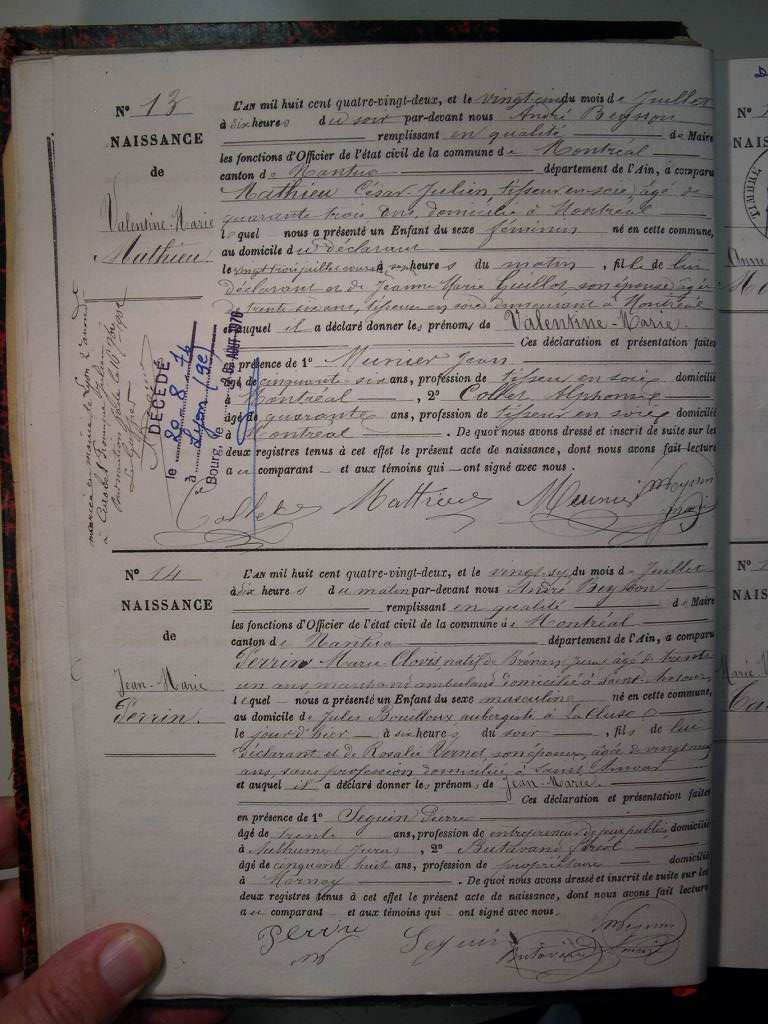 N° 13
NAISSANCE
de
Valentine-Marie
Mathieu.
L'AN mil huit cent quatre-vingt-deux, et le vingt cinq du mois de Juillet
à dix heures du soir par-devant nous André Beysson
remplissant en qualité de Maire
les fonctions d'Officier de l'état civil de la commune de Montréal
canton de Nantua département de l'Ain, a comparu
Mathieu César-Julien, tisseur en soie, âgé de
quarante trois ans, domicilié à Montréal
lequel nous a présenté un Enfant du sexe féminin né en cette commune,
au domicile du déclarant
le vingt trois juillet courant à heures du matin, fille de lui
déclarant et de Jeanne Marie Guillot son épouse âgée
de trente six ans, tisseuse en soie demeurant à Montréal
et auquel il a déclaré donner les prénoms de Valentine-Marie.
Ces déclaration et présentation faites
en présence de 1° Munier Jean
âgé de cinquante six ans, profession de tisseur en soie domicilié
à Montréal, 2° Collet Alphonse
âgé de quarante ans, profession de tisseur en soie domicilié
à Montréal. De quoi nous avons dressé et inscrit de suite sur les
deux registres tenus à cet effet le présent acte de naissance, dont nous avons fait lecture
au comparant et aux témoins qui ont signé avec nous.
Collet Mathieu Munier Beysson
mariée en mairie de Lyon 2e arrondt
DÉCÉDÉ
le 20.8.74
à Lyon (9e)
Bourg, le AOUT 1976
N° 14
NAISSANCE
de
Jean-Marie
Perrin.
L'AN mil huit cent quatre-vingt-deux, et le vingt-six du mois de Juillet
à dix heures du matin par-devant nous André Beysson
remplissant en qualité de Maire
les fonctions d'Officier de l'état civil de la commune de Montréal
canton de Nantua département de l'Ain, a comparu
Perrin Marie-Clovis natif de âgé de trente
un ans, marchand ambulant domicilié à Saint
lequel nous a présenté un Enfant du sexe masculin né en cette commune,
au domicile de Jules Bouilloux aubergiste à La Cluse
le jour d'hier à six heures du soir, fils de lui
déclarant et de Rosalie Vernet, son épouse, âgée de vingt
ans, sans profession domiciliée à Saint
et auquel il a déclaré donner les prénoms de Jean-Marie.
Ces déclaration et présentation faites
en présence de 1° Seguin Pierre
âgé de trente ans, profession de entrepreneur de domicilié
à (Jura), 2°
âgé de cinquante huit ans, profession de propriétaire domicilié
à Marnay. De quoi nous avons dressé et inscrit de suite sur les
deux registres tenus à cet effet le présent acte de naissance, dont nous avons fait lecture
au comparant et aux témoins qui ont signé avec nous.
Seguin Beysson
TIMBRE